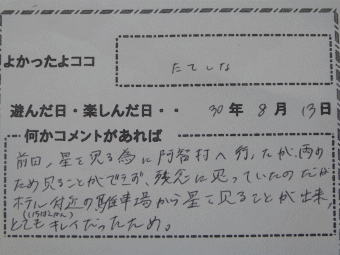 よかったよココ
たてしな
遊んだ日・楽しんだ日・・ 30年 8月 13日
何かコメントがあれば
前日、星を見る為に阿智村へ行ったが、雨の
ため見ることができず、残念に思っていたのだが
ホテル付近の駐車場から星を見ることが出来、
(いちばんかん)
とてもキレイだったため。